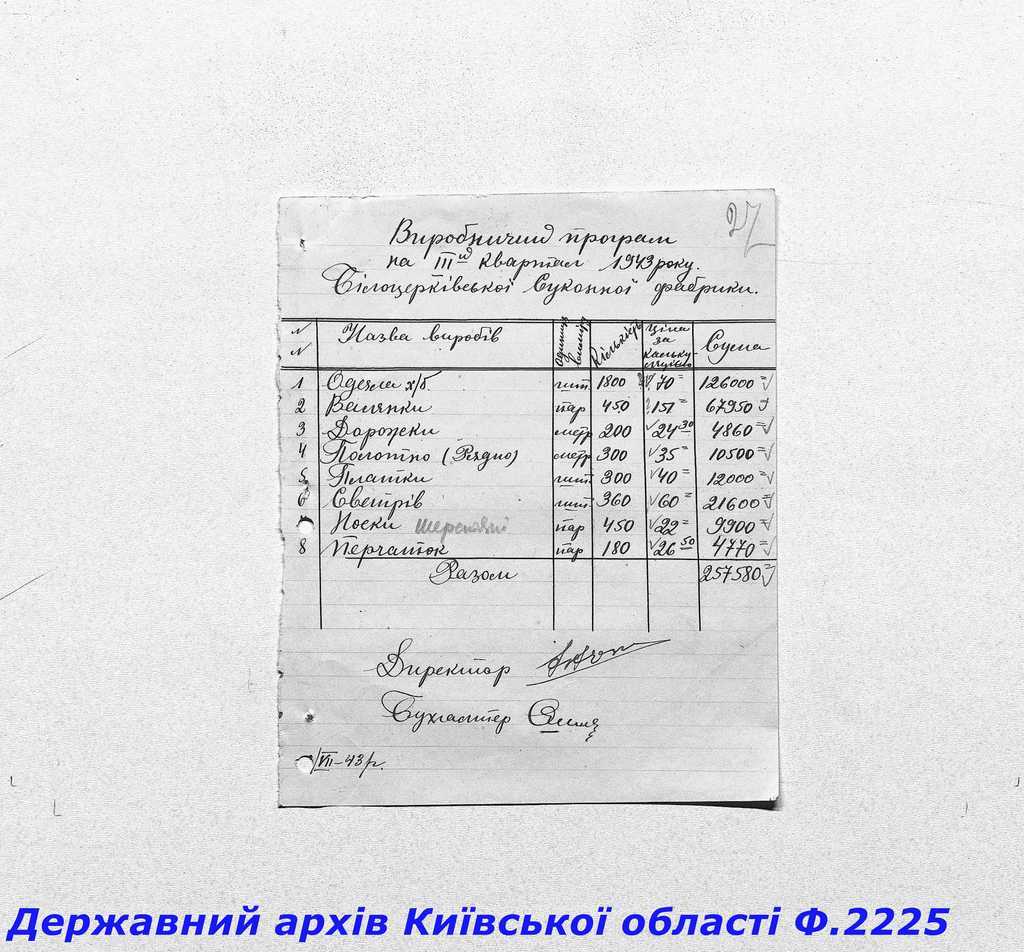 27
Виробничий програм
на IIIй квартал 1943 року.
Білоцерківської Суконної фабрики.
N N Назва виробів Одиниця виміру Кількість Ціна за калькуляцією Сума
1 Одеяла х/б шт. 1800 70= 126000=
2 Валянки пар 450 151= 67950=
3 Дорожки метр 200 24 30 4860=
4 Полотно (Рядно) метр 300 35= 10500=
5 Платки шт. 300 40= 12000=
6 Светрів шт. 360 60= 21600=
7 Носки шерстяні пар 450 22= 9900=
8 Перчаток пар 180 26 50 4770=
Разом 257580=
Директор
Бухгалтер
/VII-43 р.
Державний архів Київської області Ф.2225